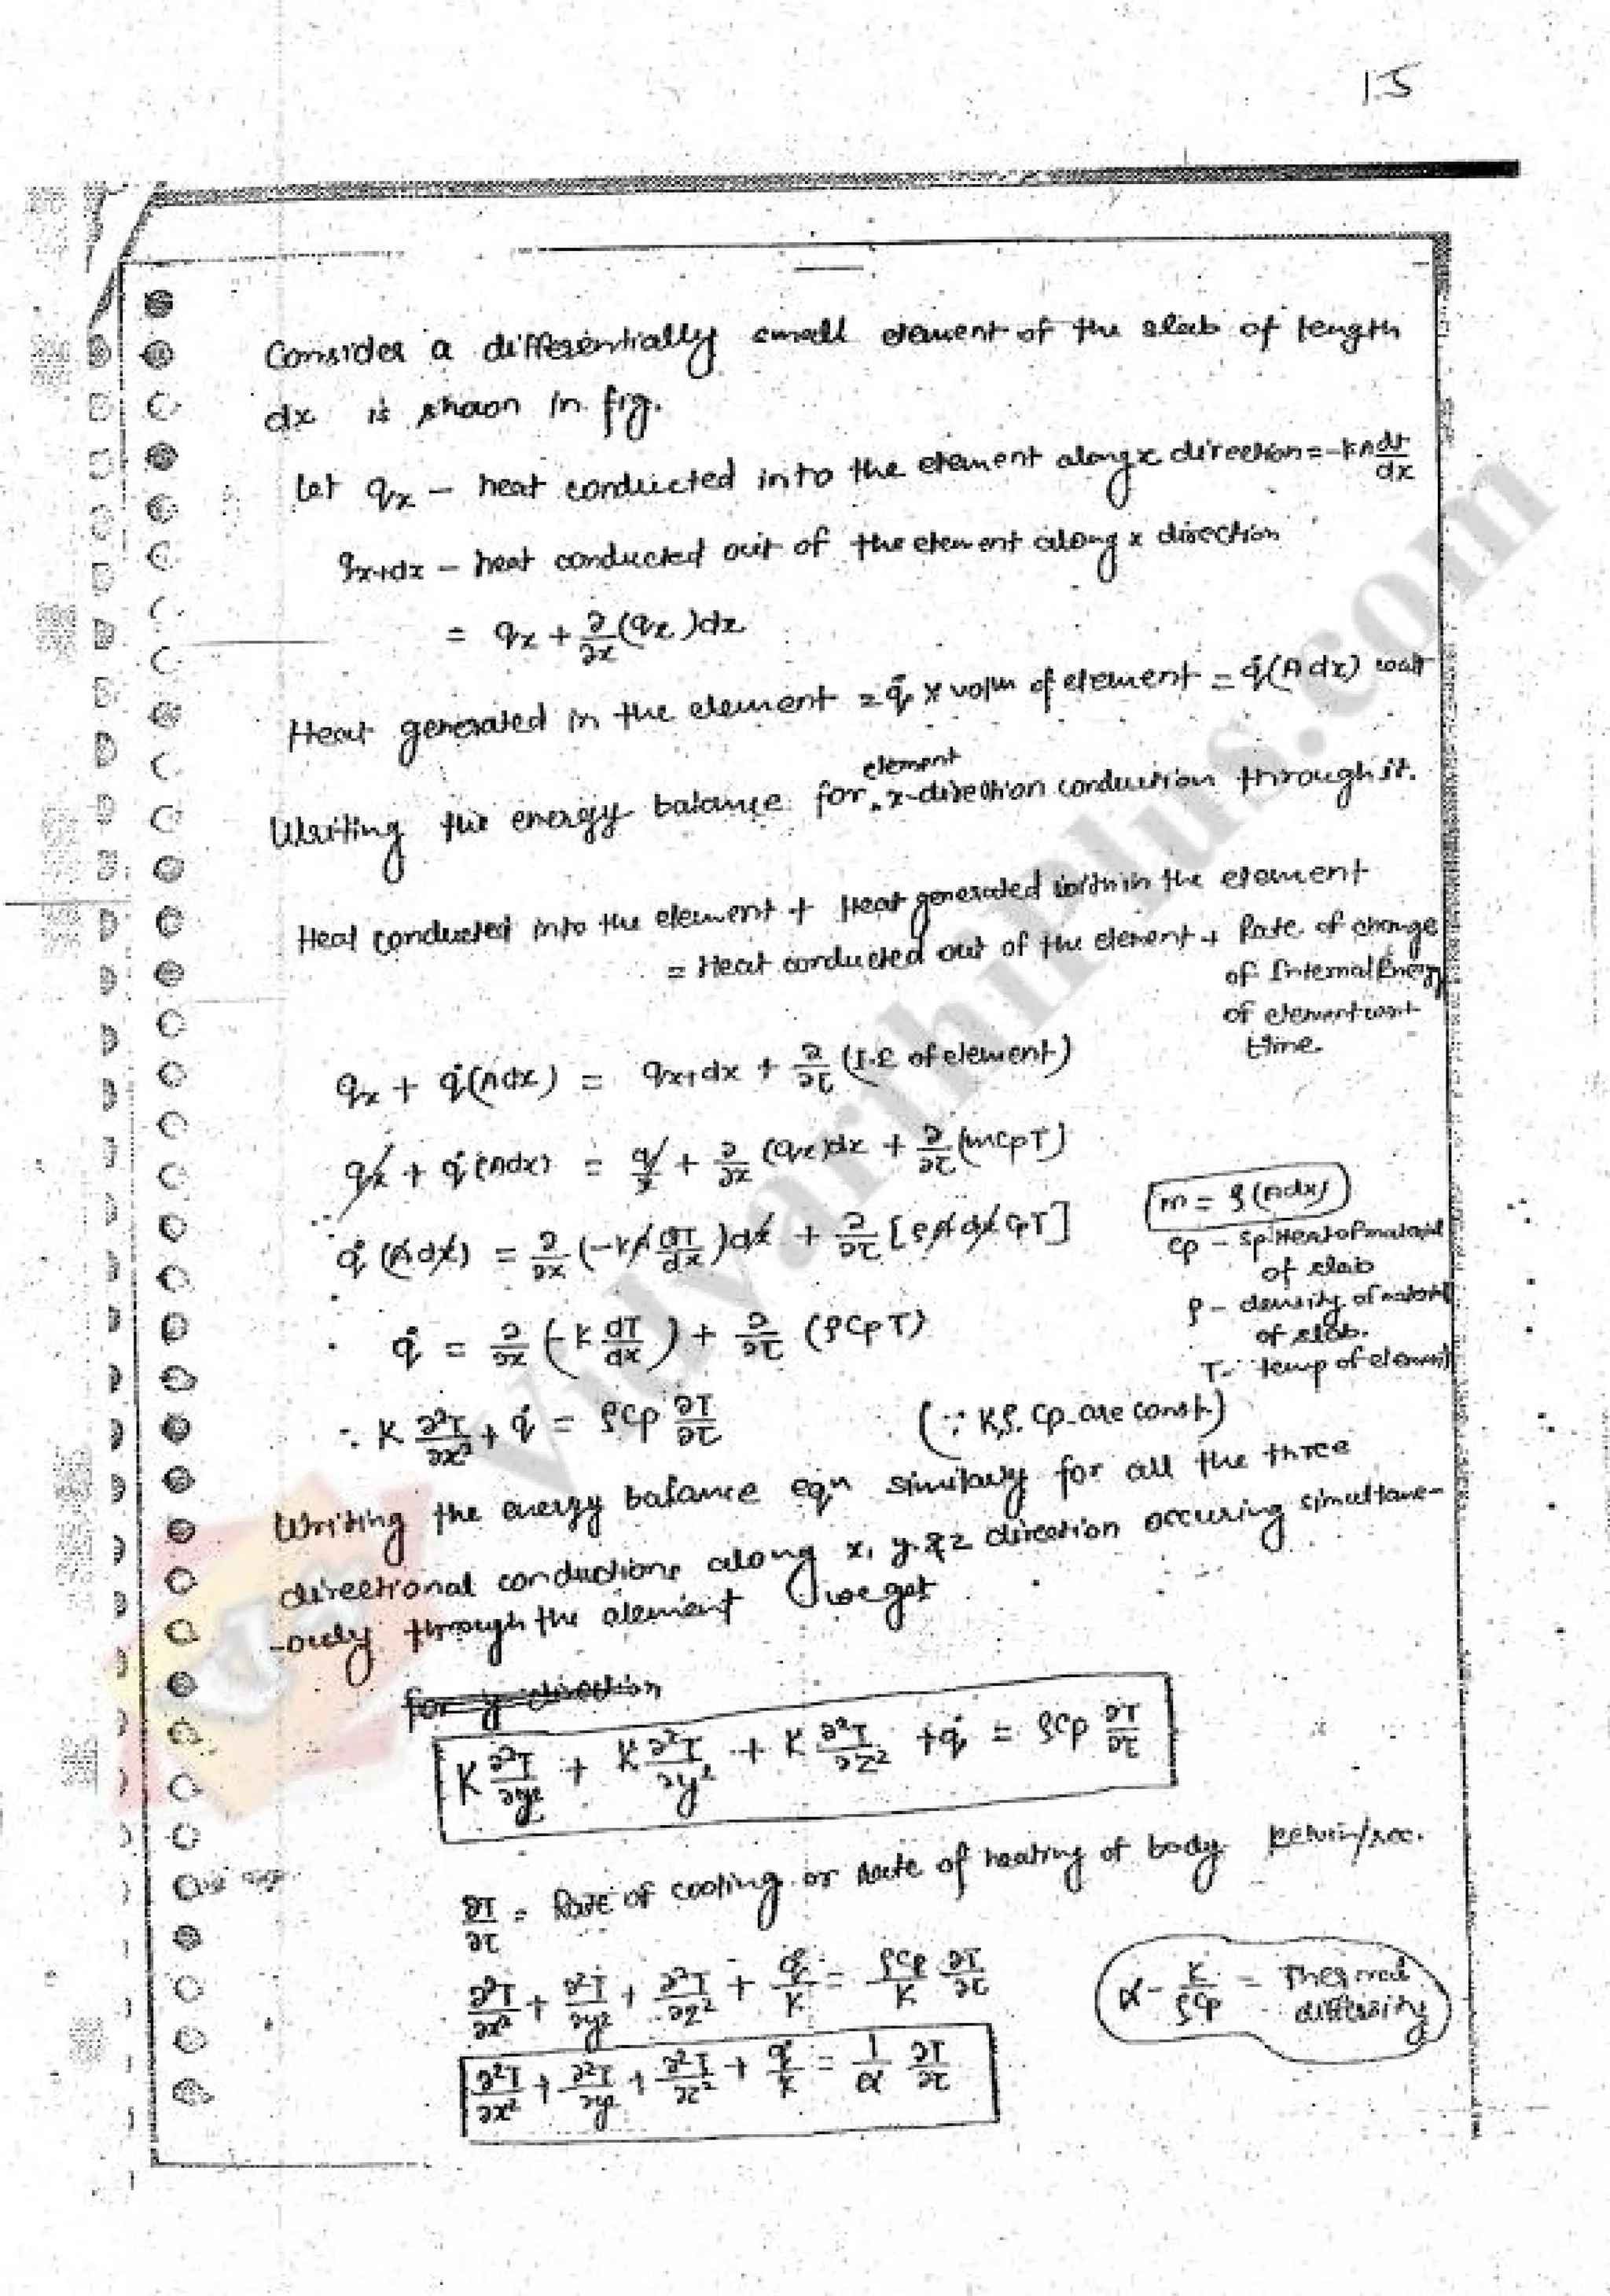 15
Consider a differentially small element of the slab of length
dx is shown in fig.
Let qx – heat conducted into the element along x direction = -KA dT/dx
qx+dx – heat conducted out of the element along x direction
= qx + ∂/∂x (qx) dx
Heat generated in the element = q̇ x volm of element = q̇(Adx) watt
element
Writing the energy balance for x-direction conduction through it.
Heat conducted into the element + Heat generated within the element
= Heat conducted out of the element + Rate of change
of Internal Energy
of element w.r.t
time.
qx + q̇(Adx) = qx+dx + ∂/∂τ (I.E of element)
qx + q̇(Adx) = qx + ∂/∂x (qx)dx + ∂/∂τ (mCpT)
m = ρ(Adx)
q̇(Adx) = ∂/∂x (-KA ∂T/dx) dx + ∂/∂τ [ρAdx CpT]
Cp – Sp. Heat of material
of slab
ρ – density of material
of slab.
q̇ = ∂/∂x (-K dT/dx) + ∂/∂τ (ρCpT)
T – temp of element
∴ K ∂²T/∂x² + q̇ = ρCp ∂T/∂τ (∵ K,ρ, Cp are const.)
Writing the energy balance eqn similarly for all the three
directional conductions along x, y & z direction occuring simultane-
-ously through the element we get
for y direction
K ∂²T/∂y² + K ∂²T/∂y² + K ∂²T/∂z² + q̇ = ρCp ∂T/∂τ
∂T/∂τ = Rate of cooling or Rate of heating of body Kelvin/sec.
∂²T/∂x² + ∂²T/∂y² + ∂²T/∂z² + q̇/K = ρCp/K ∂T/∂τ
α – K/ρCp = Thermal
diffusivity
∂²T/∂x² + ∂²T/∂y² + ∂²T/∂z² + q̇/K = 1/α ∂T/∂τ
Vidyarthiplus.com